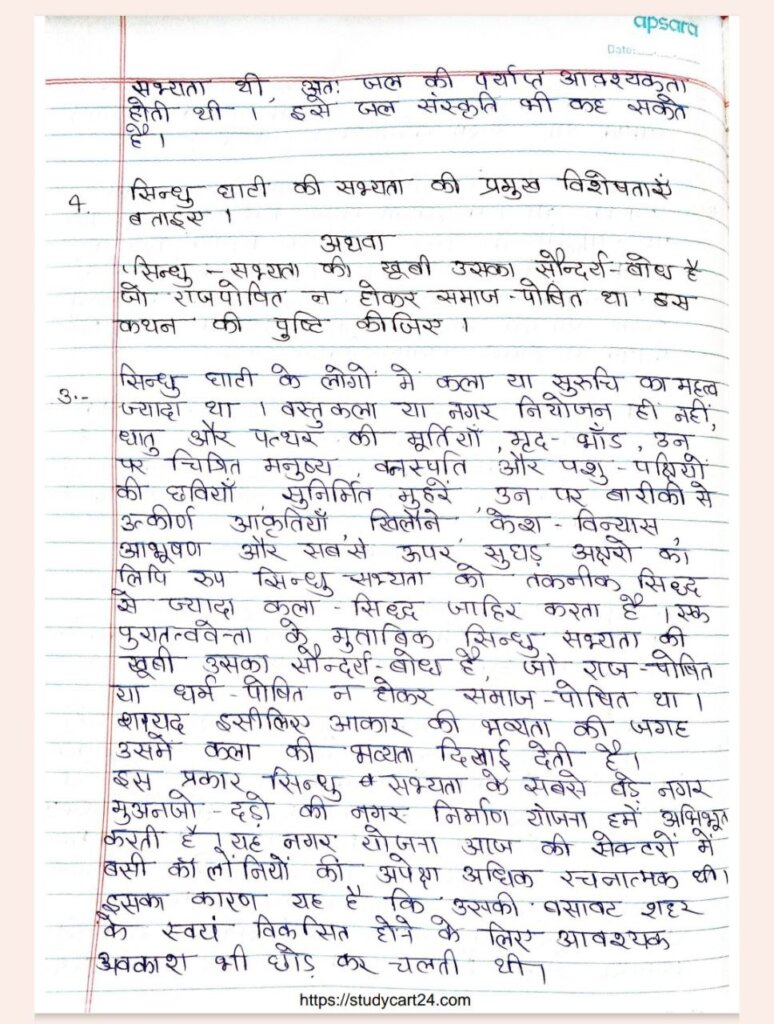 apsara
Date:
सभ्यता थी, अतः जल की पर्याप्त आवश्यकता
होती थी । इसे जल संस्कृति भी कह सकते
है ।
4. सिन्धु घाटी की सभ्यता की प्रमुख विशेषताएँ
बताइए ।
अथवा
'सिन्धु - सभ्यता की खूबी उसका सौन्दर्य-बोध है
जो राजपोषित न होकर समाज-पोषित था' इस
कथन की पुष्टि कीजिए ।
उ.- सिन्धु घाटी के लोगों में कला या सुरुचि का महत्व
ज्यादा था । वस्तुकला या नगर नियोजन ही नहीं,
धातु और पत्थर की मूर्तियाँ, मृद-भाँड, उन
पर चित्रित मनुष्य, वनस्पति और पशु-पक्षियों
की छवियाँ, सुनिर्मित मुहरें, उन पर बारीकी से
उत्कीर्ण आकृतियाँ, खिलौने, केश-विन्यास,
आभूषण और सबसे ऊपर सुघड़ अक्षरों का
लिपि रुप सिन्धु सभ्यता को तकनीक सिद्ध
से ज्यादा कला-सिद्ध जाहिर करता है । एक
पुरातत्ववेत्ता के मुताबिक सिन्धु सभ्यता की
खूबी उसका सौन्दर्य-बोध है, जो राज-पोषित
या धर्म-पोषित न होकर समाज-पोषित था ।
शायद इसीलिए आकार की भव्यता की जगह
उसमें कला की भव्यता दिखाई देती है ।
इस प्रकार सिन्धु सभ्यता के सबसे बड़े नगर
मुअनजो-दड़ो की नगर निर्माण योजना हमें अभिभूत
करती है । यह नगर योजना आज की सेक्टरों में
बसी कॉलोनियों की अपेक्षा अधिक रचनात्मक थी ।
इसका कारण यह है कि उसकी बसावट शहर
के स्वयं विकसित होने के लिए आवश्यक
अवकाश भी छोड़ कर चलती थी ।
https://studycart24.com